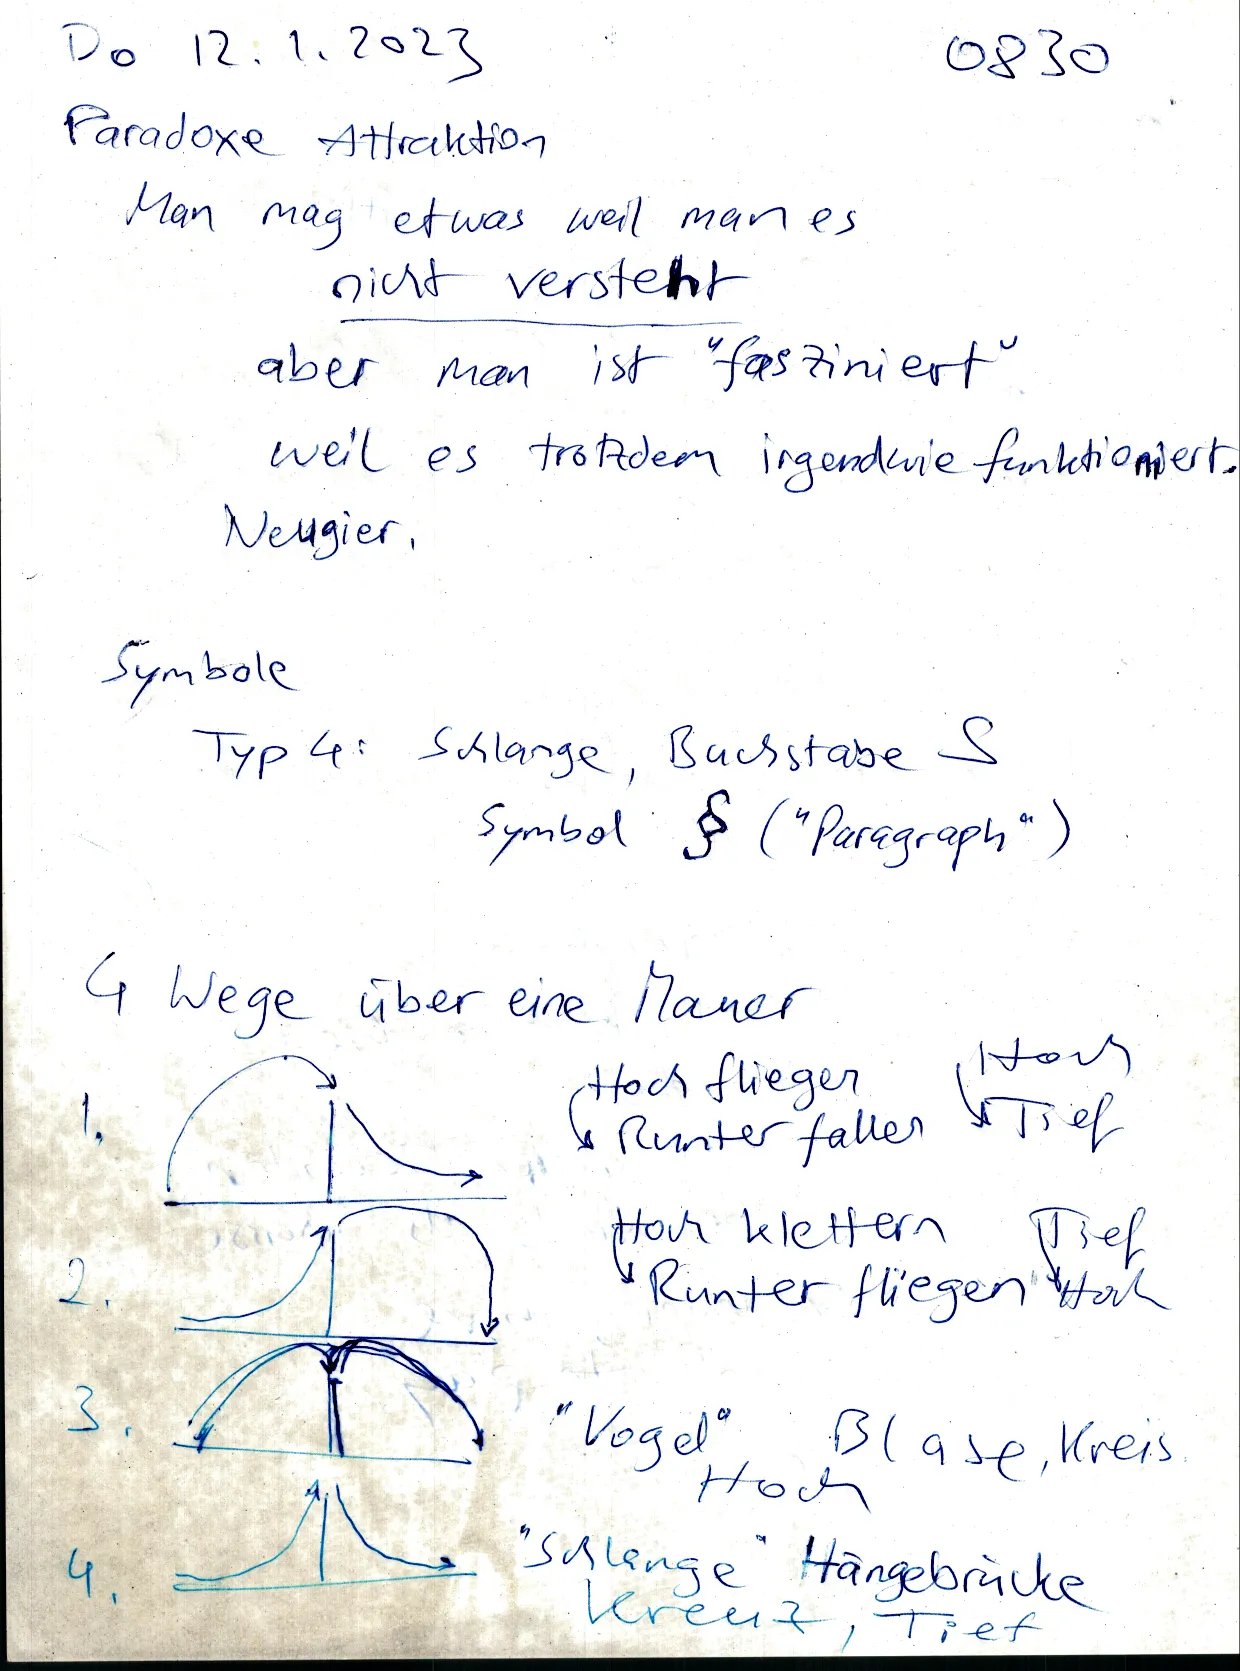 Do 12.1.2023 0830
Paradoxe Attraktion
Man mag etwas weil man es
nicht versteht
aber man ist "fasziniert"
weil es trotzdem irgendwie funktioniert.
Neugier.
Symbole
Typ 4: Schlange, Buchstabe S
Symbol § ("Paragraph")
4 Wege über eine Mauer
1. Hoch fliegen Hoch
Runter fallen Tief
2. Hoch klettern Tief
Runter fliegen Hoch
3. "Vogel" Blase, Kreis
Hoch
4. "Schlange" Hängebrücke
Kreuz, Tief